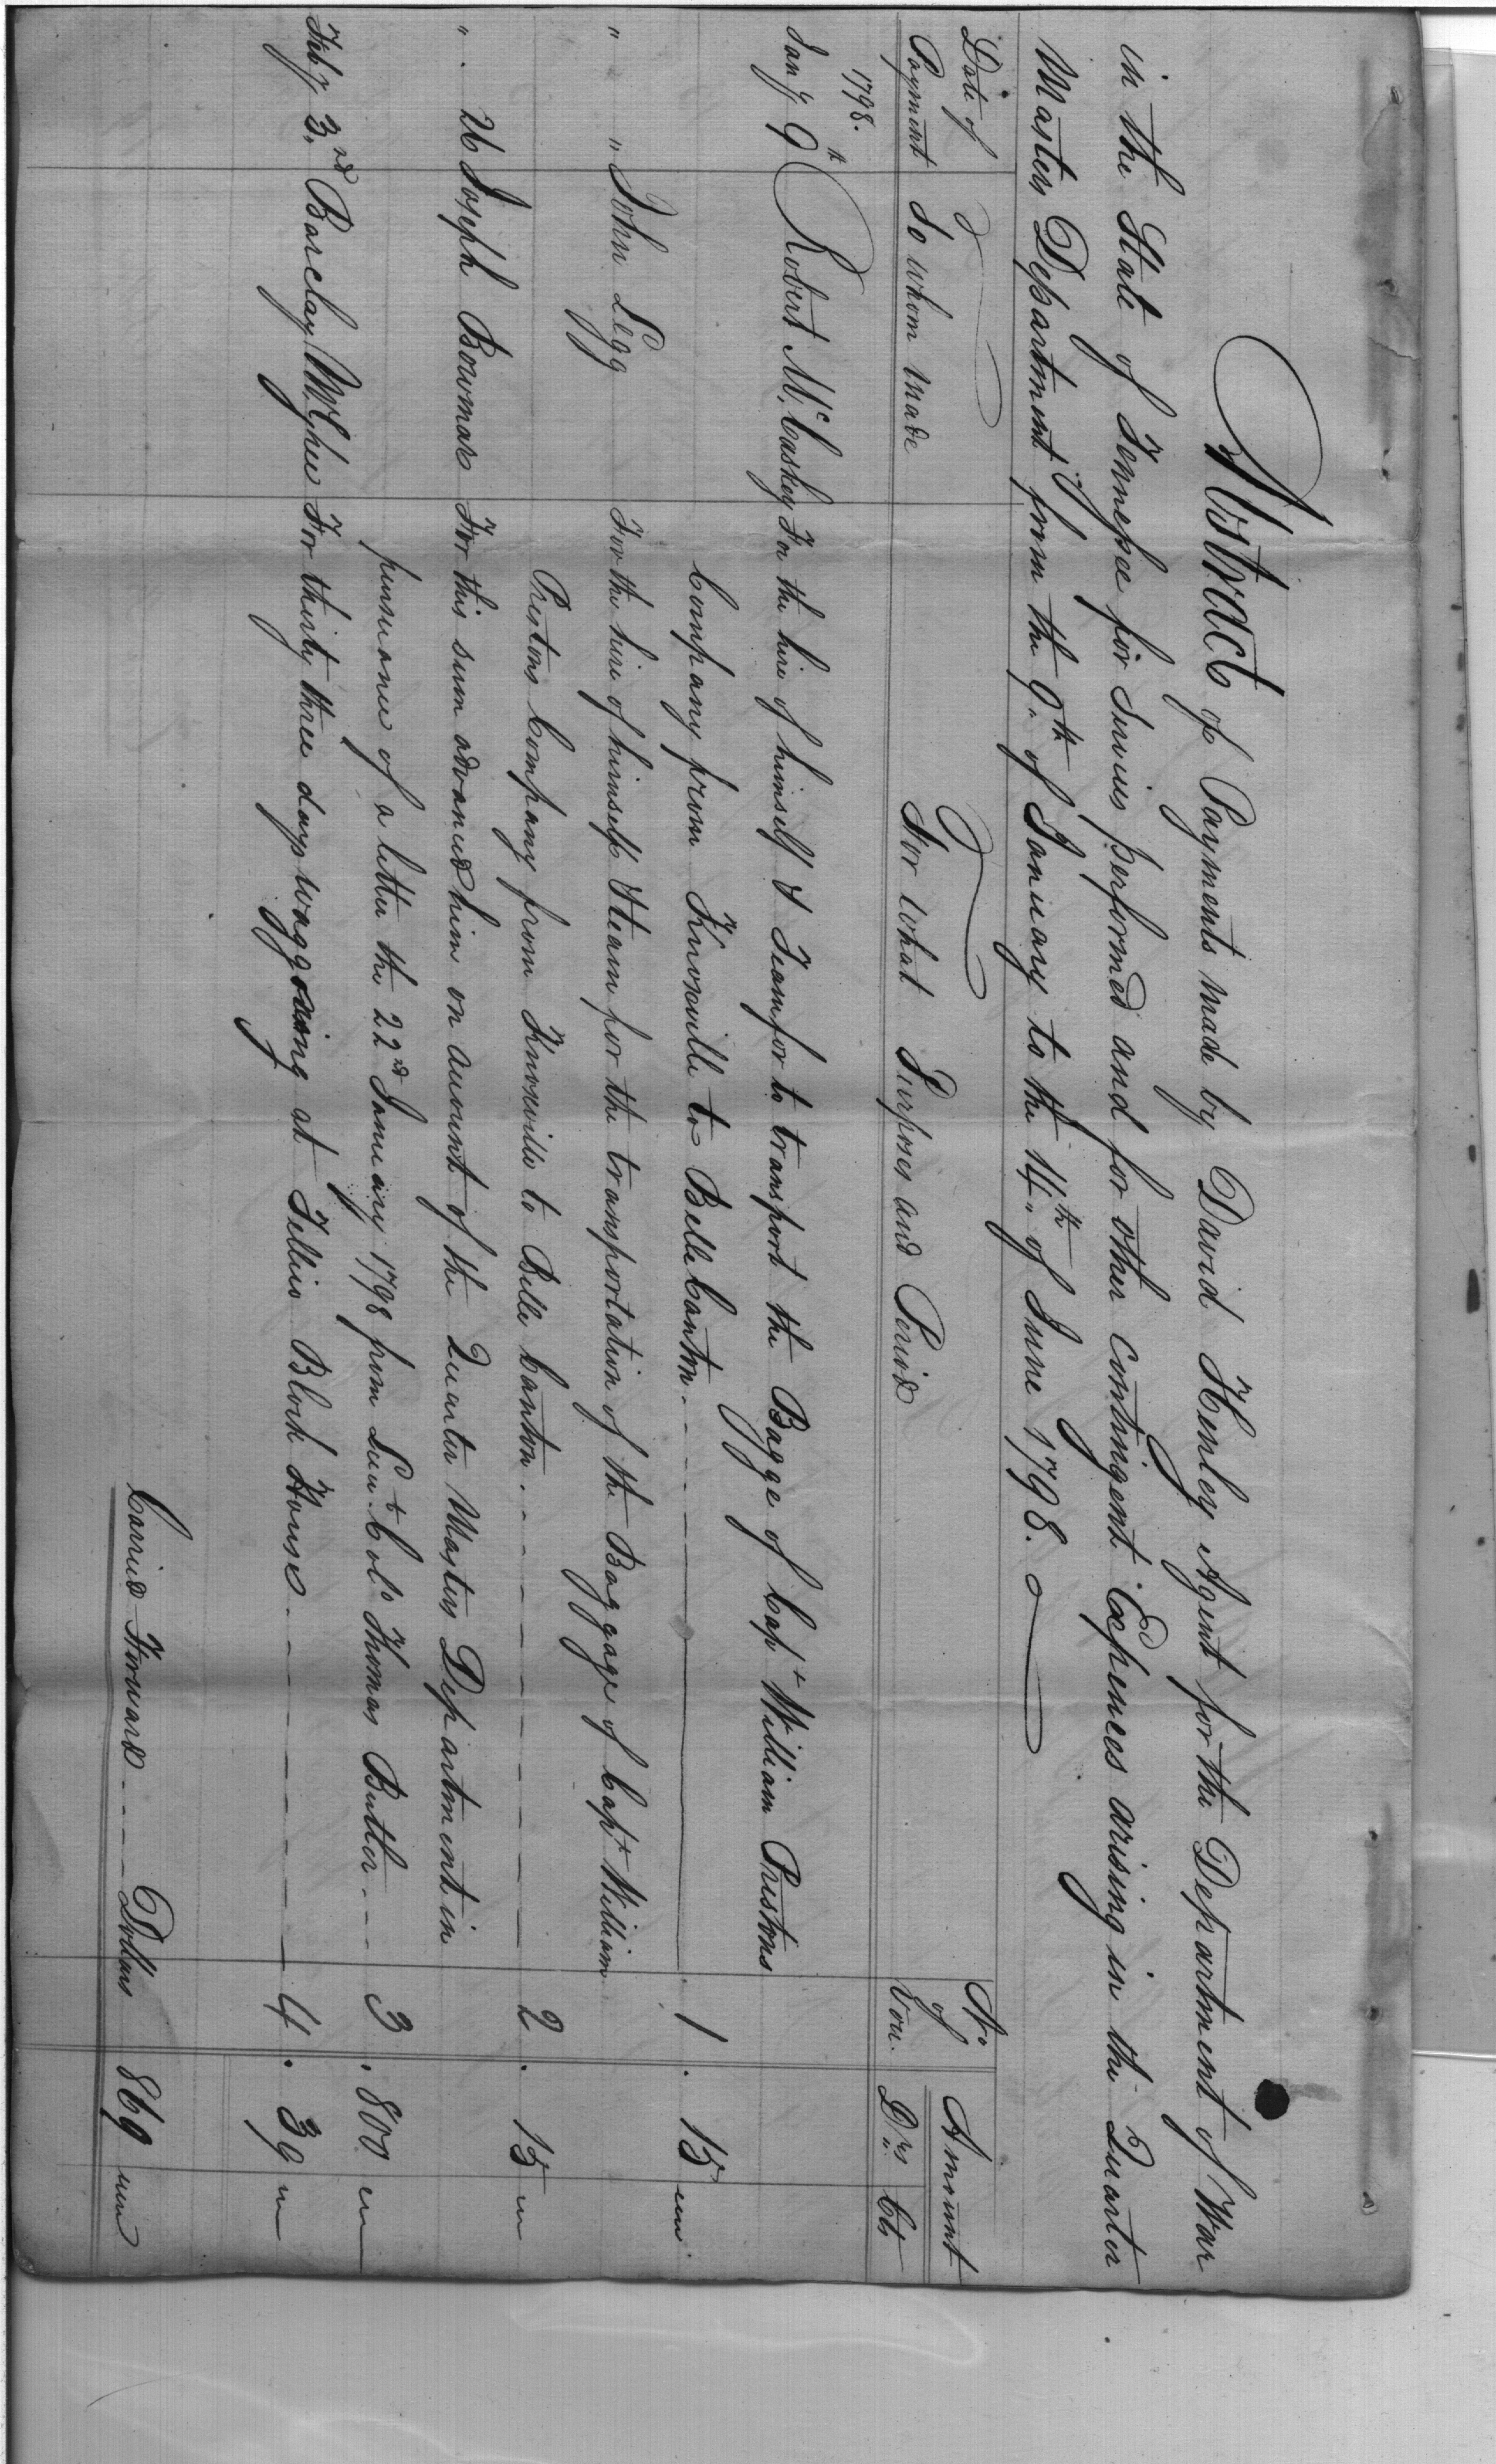 Abstract of Payments made by David Henley Agent for the Department of War
in the State of Tennessee for Services performed and for other contingent Expences arising in the Quarter
Masters Department from the 9th of January to the 14th of June 1798.
Date of Payment To whom made For what Purposes and Period No. of Vou. Amount Drs Cts
1798.
Jany 9th Robert McCaskey For the hire of himself & Team for to transport the Bagge of Capt William Prestons
Company from Knoxville to Belle Canton 1. 15 "
" " John Legg For the hire of himself & team for the transportation of the Baggage of Capt William
Prestons Company from Knoxville to Belle Canton 2. 15 "
" 26 Joseph Bowman For this sum advanced him on account of the Quarter Masters Department in
pursuance of a letter the 22nd January 1798 from Lieut Colo Thomas Butler 3. 800 "
Feby 3rd Barclay McGhee For thirty three days waggoning at Tellico Block House 4. 39 "
Carried Forward Dollars 869 "